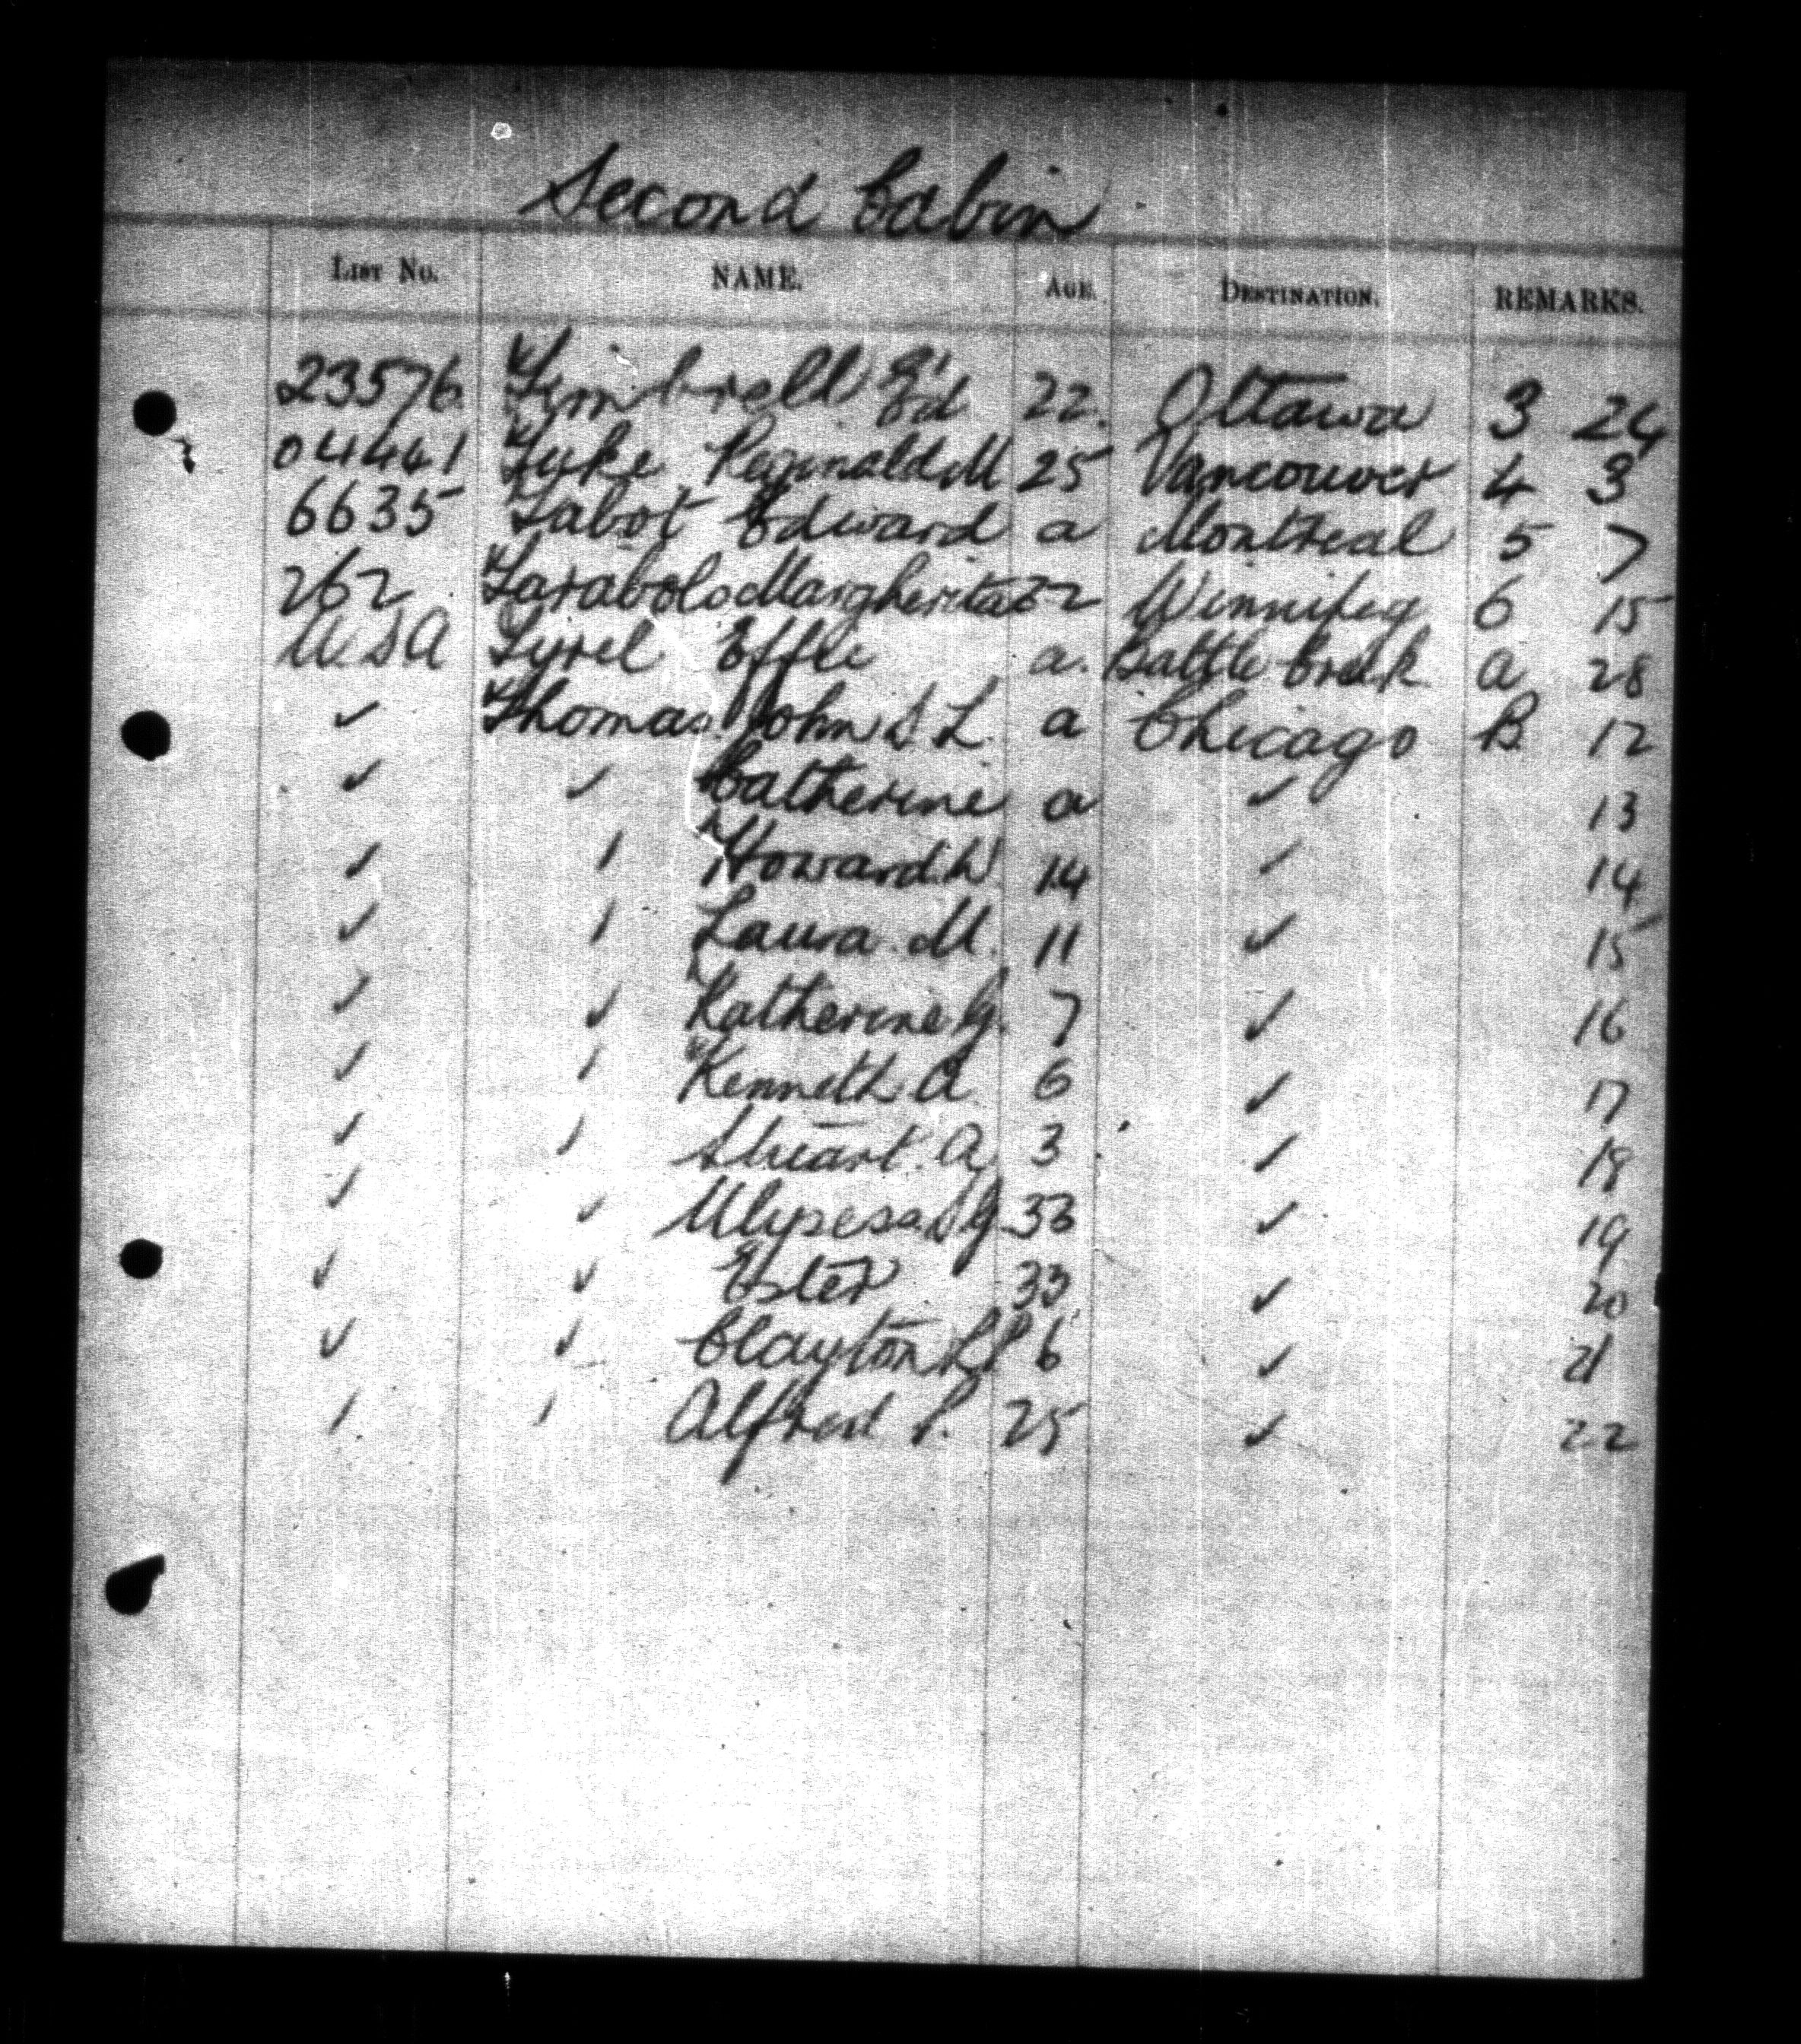 Second Cabin
LIST No. NAME. AGE. DESTINATION. REMARKS.
23576 Timbrell Ed 22. Ottawa 3 24
04441 Tyke Reginald M 25 Vancouver 4 3
6635 Tabot Edward a Montreal 5 7
262 Tarabolo Margherita 22 Winnipeg 6 15
USA Tyrel Effie a. Battle Creek a 28
✓ Thomas John S L. a Chicago B 12
✓ ✓ Catherine a ✓ 13
✓ ✓ Howard W 14 ✓ 14
✓ ✓ Laura M. 11 ✓ 15
✓ ✓ Katherine G. 7 ✓ 16
✓ ✓ Kenneth A 6 ✓ 17
✓ ✓ Stuart A 3 ✓ 18
✓ ✓ Ulysesa S G 33 ✓ 19
✓ ✓ Ester 33 ✓ 20
✓ ✓ Clayton 6 ✓ 21
✓ ✓ Alfred P. 25 ✓ 22